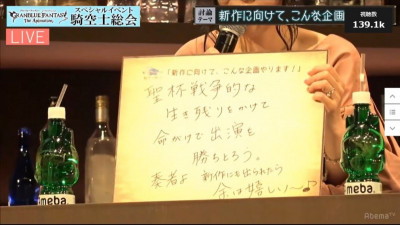 GRANBLUE FANTASY
The Animation
スペシャルイベント
騎空士総会
討論
テーマ
新作に向けて、こんな企画
視聴数
139.1k
LIVE
「新作に向けて、こんな企画やります!」
聖杯戦争的な
生き残りをかけて
命がけで出演を
勝ちとろう。
奏者よ 新作にも出られたら
余は嬉しい〜♪
meba.
meba.
AbemaTV